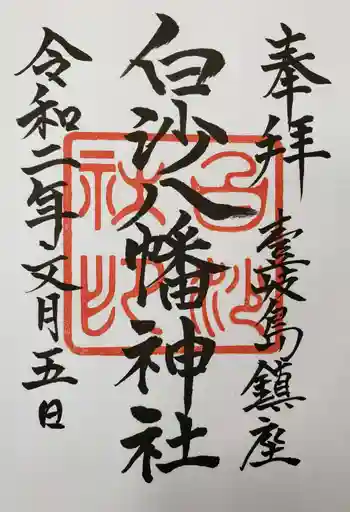 奉拝
壹岐島鎮座
白沙八幡神社
令和二年文月五日
白沙
社印